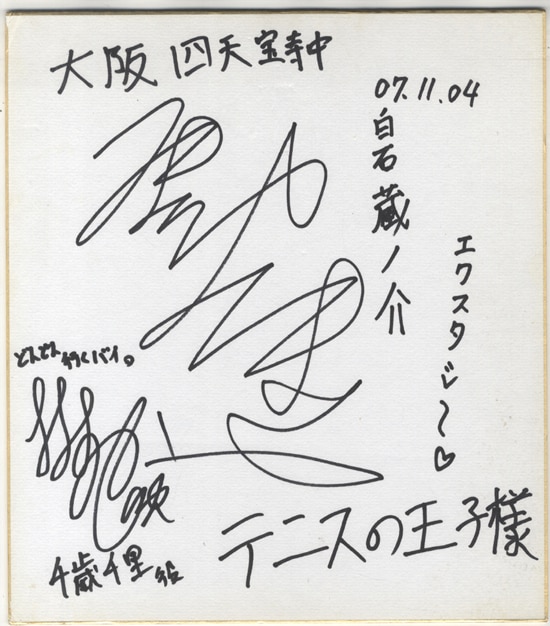 大阪 四天宝寺中
07.11.04
白石 蔵ノ介
エクスタシ〜♡
どんどん行くバイ。
千歳千里 役
テニスの王子様